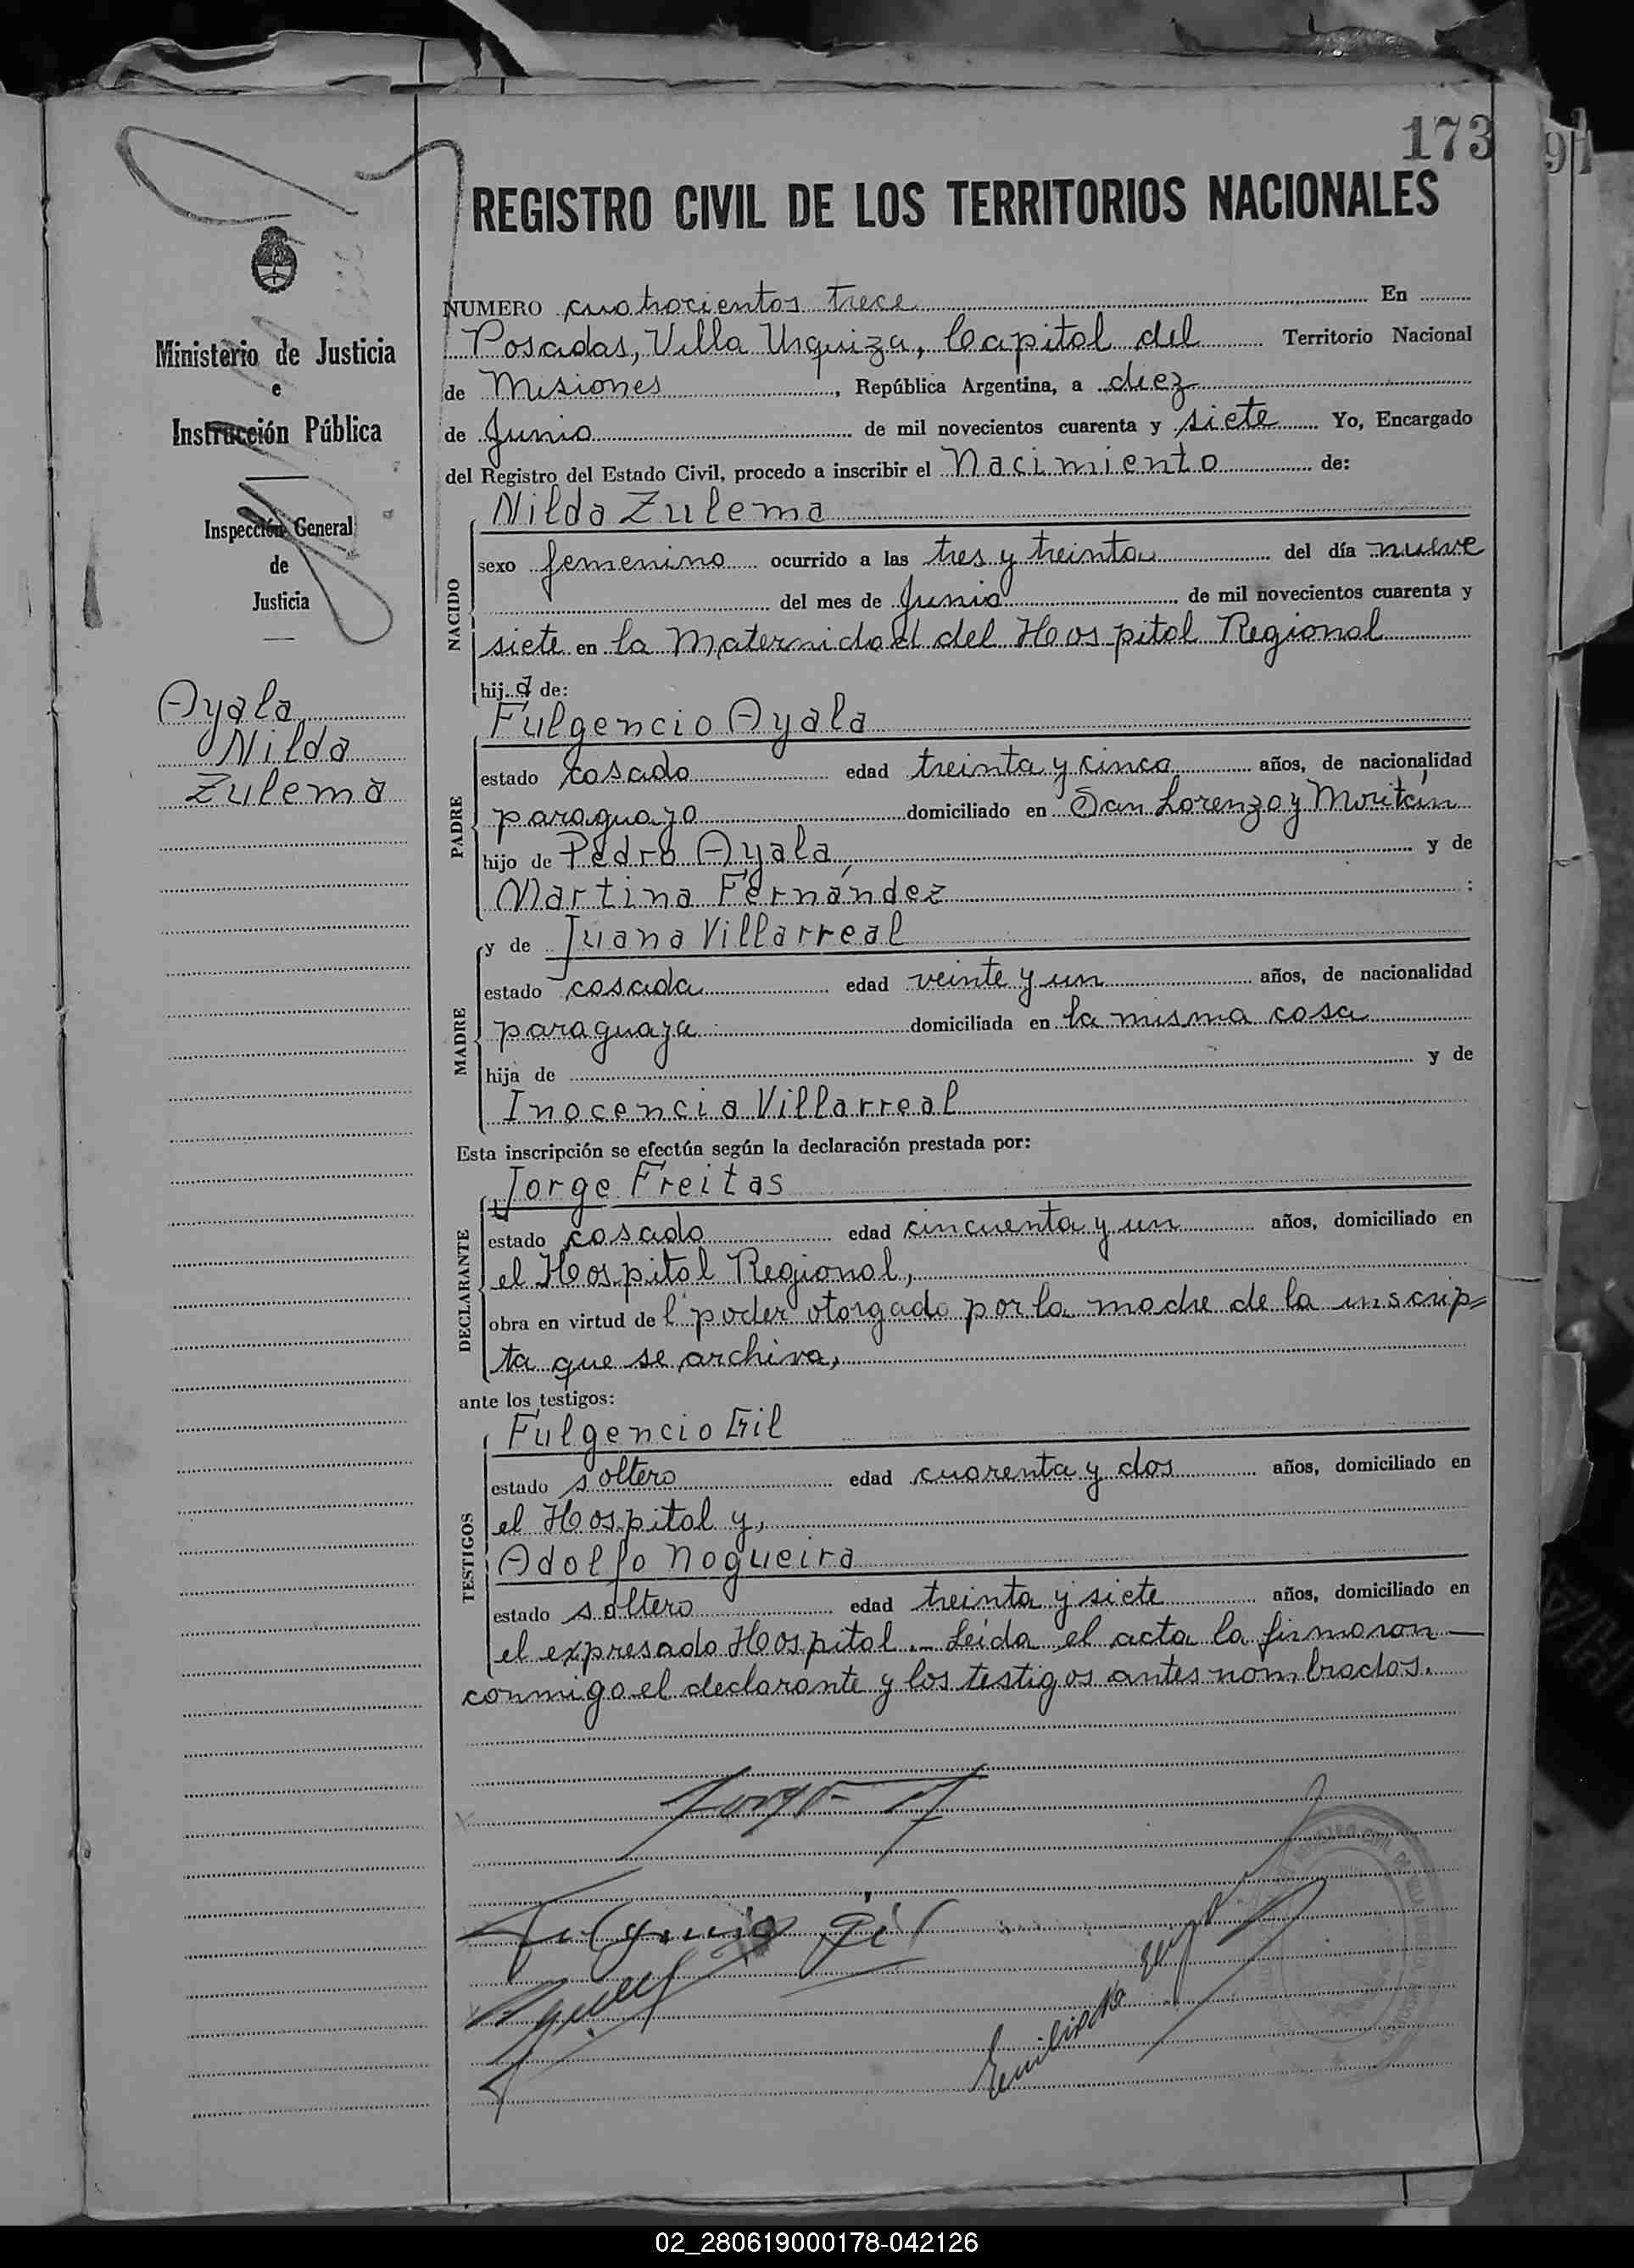 173
91
REGISTRO CIVIL DE LOS TERRITORIOS NACIONALES
Ministerio de Justicia
e
Instrucción Pública
Inspección General
de
Justicia
Ayala
Nilda
Zulema
NUMERO cuatrocientos trece En
Posadas, Villa Urquiza, Capital del Territorio Nacional
de Misiones, República Argentina, a diez
de Junio de mil novecientos cuarenta y siete Yo, Encargado
del Registro del Estado Civil, procedo a inscribir el Nacimiento de:
NACIDO
Nilda Zulema
sexo femenino ocurrido a las tres y treinta del día nueve
del mes de Junio de mil novecientos cuarenta y
siete en la Maternidad del Hospital Regional
hija de:
PADRE
Fulgencio Ayala
estado casado edad treinta y cinco años, de nacionalidad
paraguayo domiciliado en San Lorenzo y Moritán
hijo de Pedro Ayala y de
Martina Fernández :
MADRE
y de Juana Villarreal
estado casada edad veinte y un años, de nacionalidad
paraguaya domiciliada en la misma casa
hija de y de
Inocencia Villarreal
Esta inscripción se efectúa según la declaración prestada por:
DECLARANTE
Jorge Freitas
estado casado edad cincuenta y un años, domiciliado en
el Hospital Regional,
obra en virtud del poder otorgado por la madre de la inscrip=
ta que se archiva,
ante los testigos:
TESTIGOS
Fulgencio Gil
estado soltero edad cuarenta y dos años, domiciliado en
el Hospital y,
Adolfo Nogueira
estado soltero edad treinta y siete años, domiciliado en
el expresado Hospital.- Leída el acta la firmaron —
conmigo el declarante y los testigos antes nombrados.
Jorge
Fulgencio Gil
02_280619000178-042126